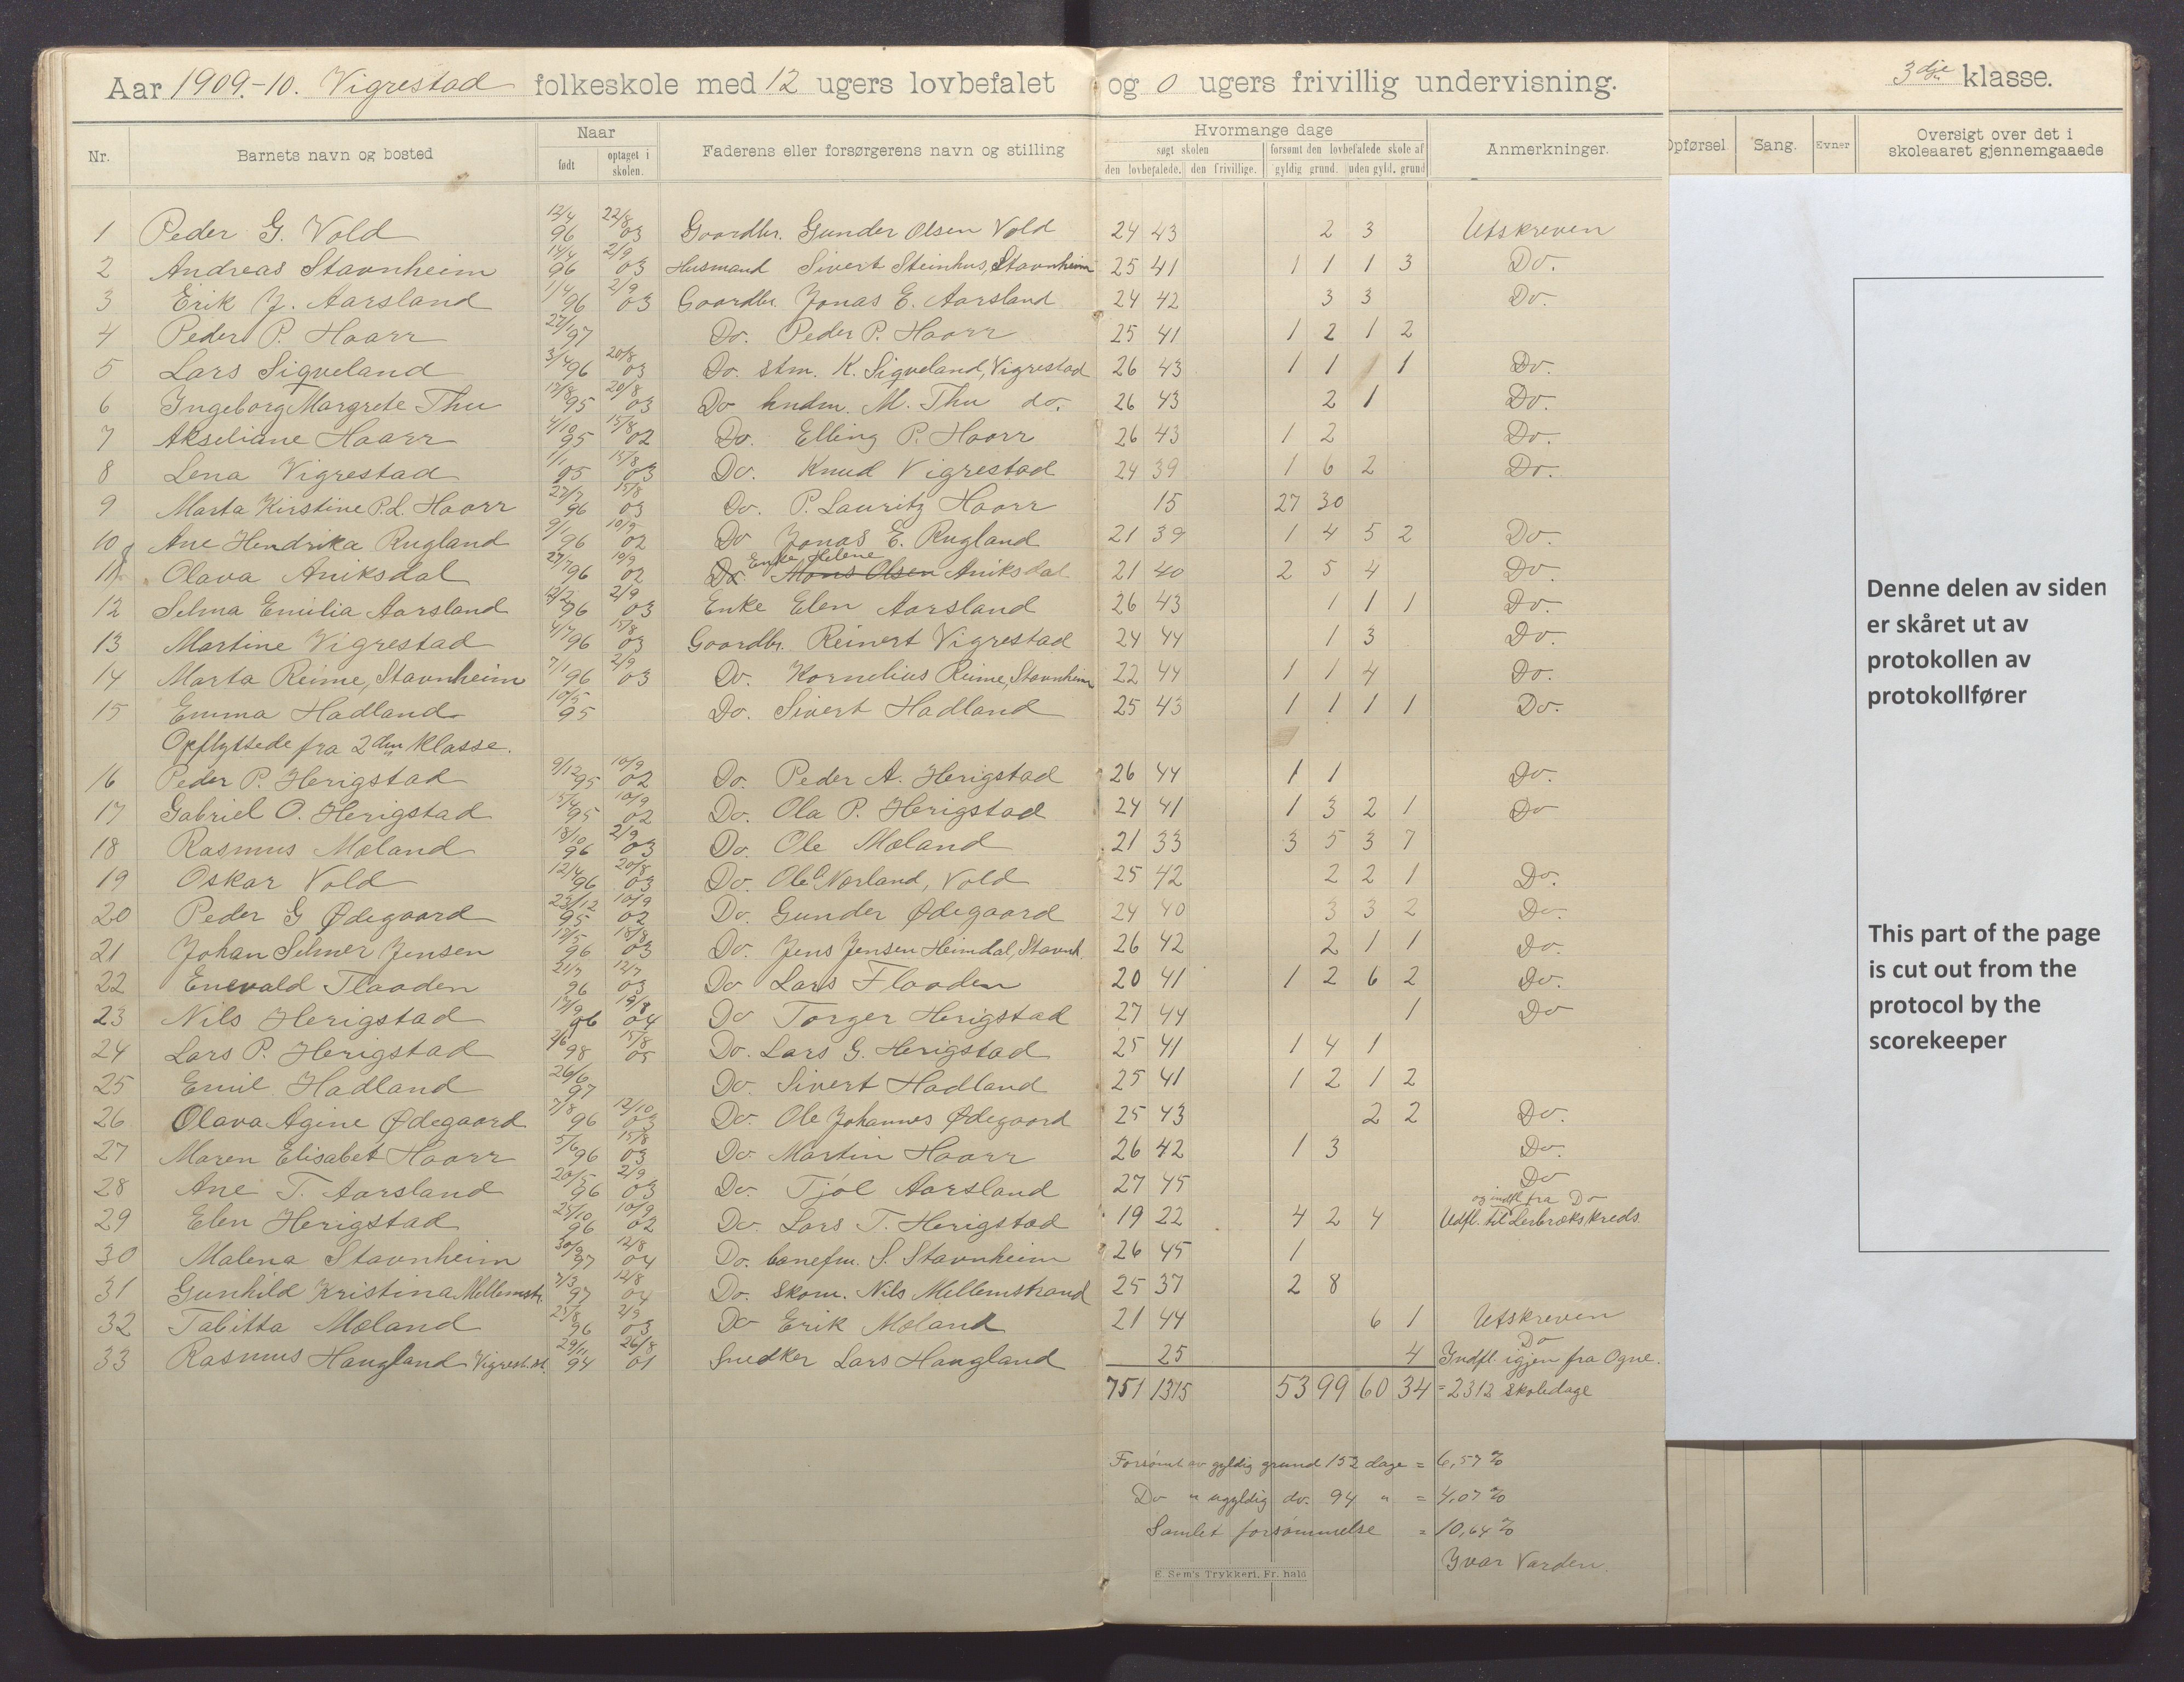 Aar 1909.-10. Vigrestad folkeskole med 12 ugers lovbefalet og 0 ugers frivillig undervisning. 3dje klasse.
Nr. Barnets navn og bosted Naar født optaget i skolen. Faderens eller forsørgerens navn og stilling Hvormange dage søgt skolen den lovbefalede. den frivillige. forsømt den lovbefalede skole af gyldig grund. uden gyld. grund Anmerkninger. Opførsel Sang. Evner Oversigt over det i skoleaaret gjennemgaaede
1 Peder G. Vold 12/4 96 22/8 03 Gaardbr. Gunder Olsen Vold 24 43 2 3 Utskreven
2 Andreas Stavnheim 14/4 96 2/9 03 Husmand Sivert Steinhus, Stavnheim 25 41 1 1 1 3 Do.
3 Erik J. Aarsland 1/4 96 2/9 03 Gaardbr. Jonas E. Aarsland 24 42 3 3 Do.
4 Peder P. Haarr 27/1 97 Do. Peder P. Haarr 25 41 1 2 1 2
5 Lars Sigveland 3/4 96 20/8 03 Do. stm. K. Sigveland, Vigrestad 26 43 1 1 1 Do.
6 Ingeborg Margrete Thu 12/8 95 20/8 03 Do hndm. M. Thu do. 26 43 2 1 Do.
7 Akseliane Haarr 4/10 95 15/8 02 Do. Elling P. Haarr 26 43 1 2 Do.
8 Lena Vigrestad 1/1 95 15/8 03 Do. Knud Vigrestad 24 39 1 6 2 Do.
9 Marta Kirstine P.L. Haarr 27/7 96 15/8 03 Do. P. Lauritz Haarr 15 27 30
10 Ane Hendrika Rugland 9/1 96 10/9 02 Do Jonas E. Rugland 21 39 1 4 5 2 Do.
11 Olava Aniksdal 27/7 96 10/9 02 Do Enke, Helene Mons Olsen Aniksdal 21 40 2 5 4 Do
12 Selma Emilia Aarsland 12/2 96 2/9 03 Enke Elen Aarsland 26 43 1 1 1 Do.
13 Martine Vigrestad 4/7 96 15/8 03 Gaardbr. Reinert Vigrestad 24 44 1 3 Do.
14 Marta Reime, Stavnheim 7/1 96 2/9 03 Do. Kornelius Reime, Stavnheim 22 44 1 1 4 Do.
15 Emma Hadland 10/5 95 Do. Sivert Hadland 25 43 1 1 1 1 Do.
Opflyttede fra 2den klasse.
16 Peder P. Herigstad 9/12 95 10/9 02 Do. Peder A. Herigstad 26 44 1 1 Do.
17 Gabriel O. Herigstad 15/4 95 10/9 02 Do. Ola P. Herigstad 24 41 1 3 2 1 Do
18 Rasmus Mæland 18/10 96 2/9 03 Do. Ole Mæland 21 33 3 5 3 7
19 Oskar Vold 12/4 96 20/8 03 Do. Ole O. Nærland, Vold 25 42 2 2 1 Do.
20 Peder G Ødegaard 23/12 95 10/9 02 Do. Gunder Ødegaard 24 40 3 3 2 Do.
21 Johan Selmer Jensen 13/5 96 18/8 03 Do. Jens Jensen Heimdal, Stavnh. 26 42 2 1 1 Do.
22 Enevald Flaaden 21/3 96 12/7 03 Do Lars Flaaden 20 41 1 2 6 2 Do.
23 Nils Herigstad 17/9 96 19/8 04 Do Torger Herigstad 27 44 1 Do
24 Lars P. Herigstad 2/6 98 15/8 05 Do. Lars G. Herigstad 25 41 1 4 1
25 Emil Hadland 26/6 97 Do. Sivert Hadland 25 41 1 2 1 2
26 Olava Agine Ødegaard 7/8 96 12/10 03 Do. Ole Johannes Ødegaard 25 43 2 2 Do.
27 Maren Elisabet Haarr 5/6 96 15/8 03 Do. Martin Haarr 26 42 1 3 Do.
28 Ane T. Aarsland 20/5 96 2/9 03 Do. Tjøl Aarsland 27 45 Do
29 Elen Herigstad 25/10 96 10/9 02 Do. Lars T. Herigstad 19 22 4 2 4 og indfl. fra Do Udfl. til Lerbrækskreds.
30 Malena Stavnheim 30/9 97 12/8 04 Do. banefm. S. Stavnheim 26 45 1
31 Gunhild Kristina Mellemstr. 7/3 97 12/8 04 Do. Skom. Nils Mellemstrand 25 37 2 8
32 Tabitta Mæland 25/8 96 2/9 03 Do Erik Mæland 21 44 6 1 Utskreven
33 Rasmus Haugland Vigrest.st. 29/11 94 26/8 01 Snedker Lars Haugland 25 4 Do Indfl. igjen fra Ogne.
751 1315 53 99 60 34 = 2312 skoledage
Forsømt av gyldig grund 152 dage = 6,57 %
Do " ugyldig do. 94 " = 4,07 %
Samlet forsømmelse = 10,64 %
Ivar Varden.
E. Sem's Trykkeri, Fr. hald
Denne delen av siden
er skåret ut av
protokollen av
protokollfører
This part of the page
is cut out from the
protocol by the
scorekeeper